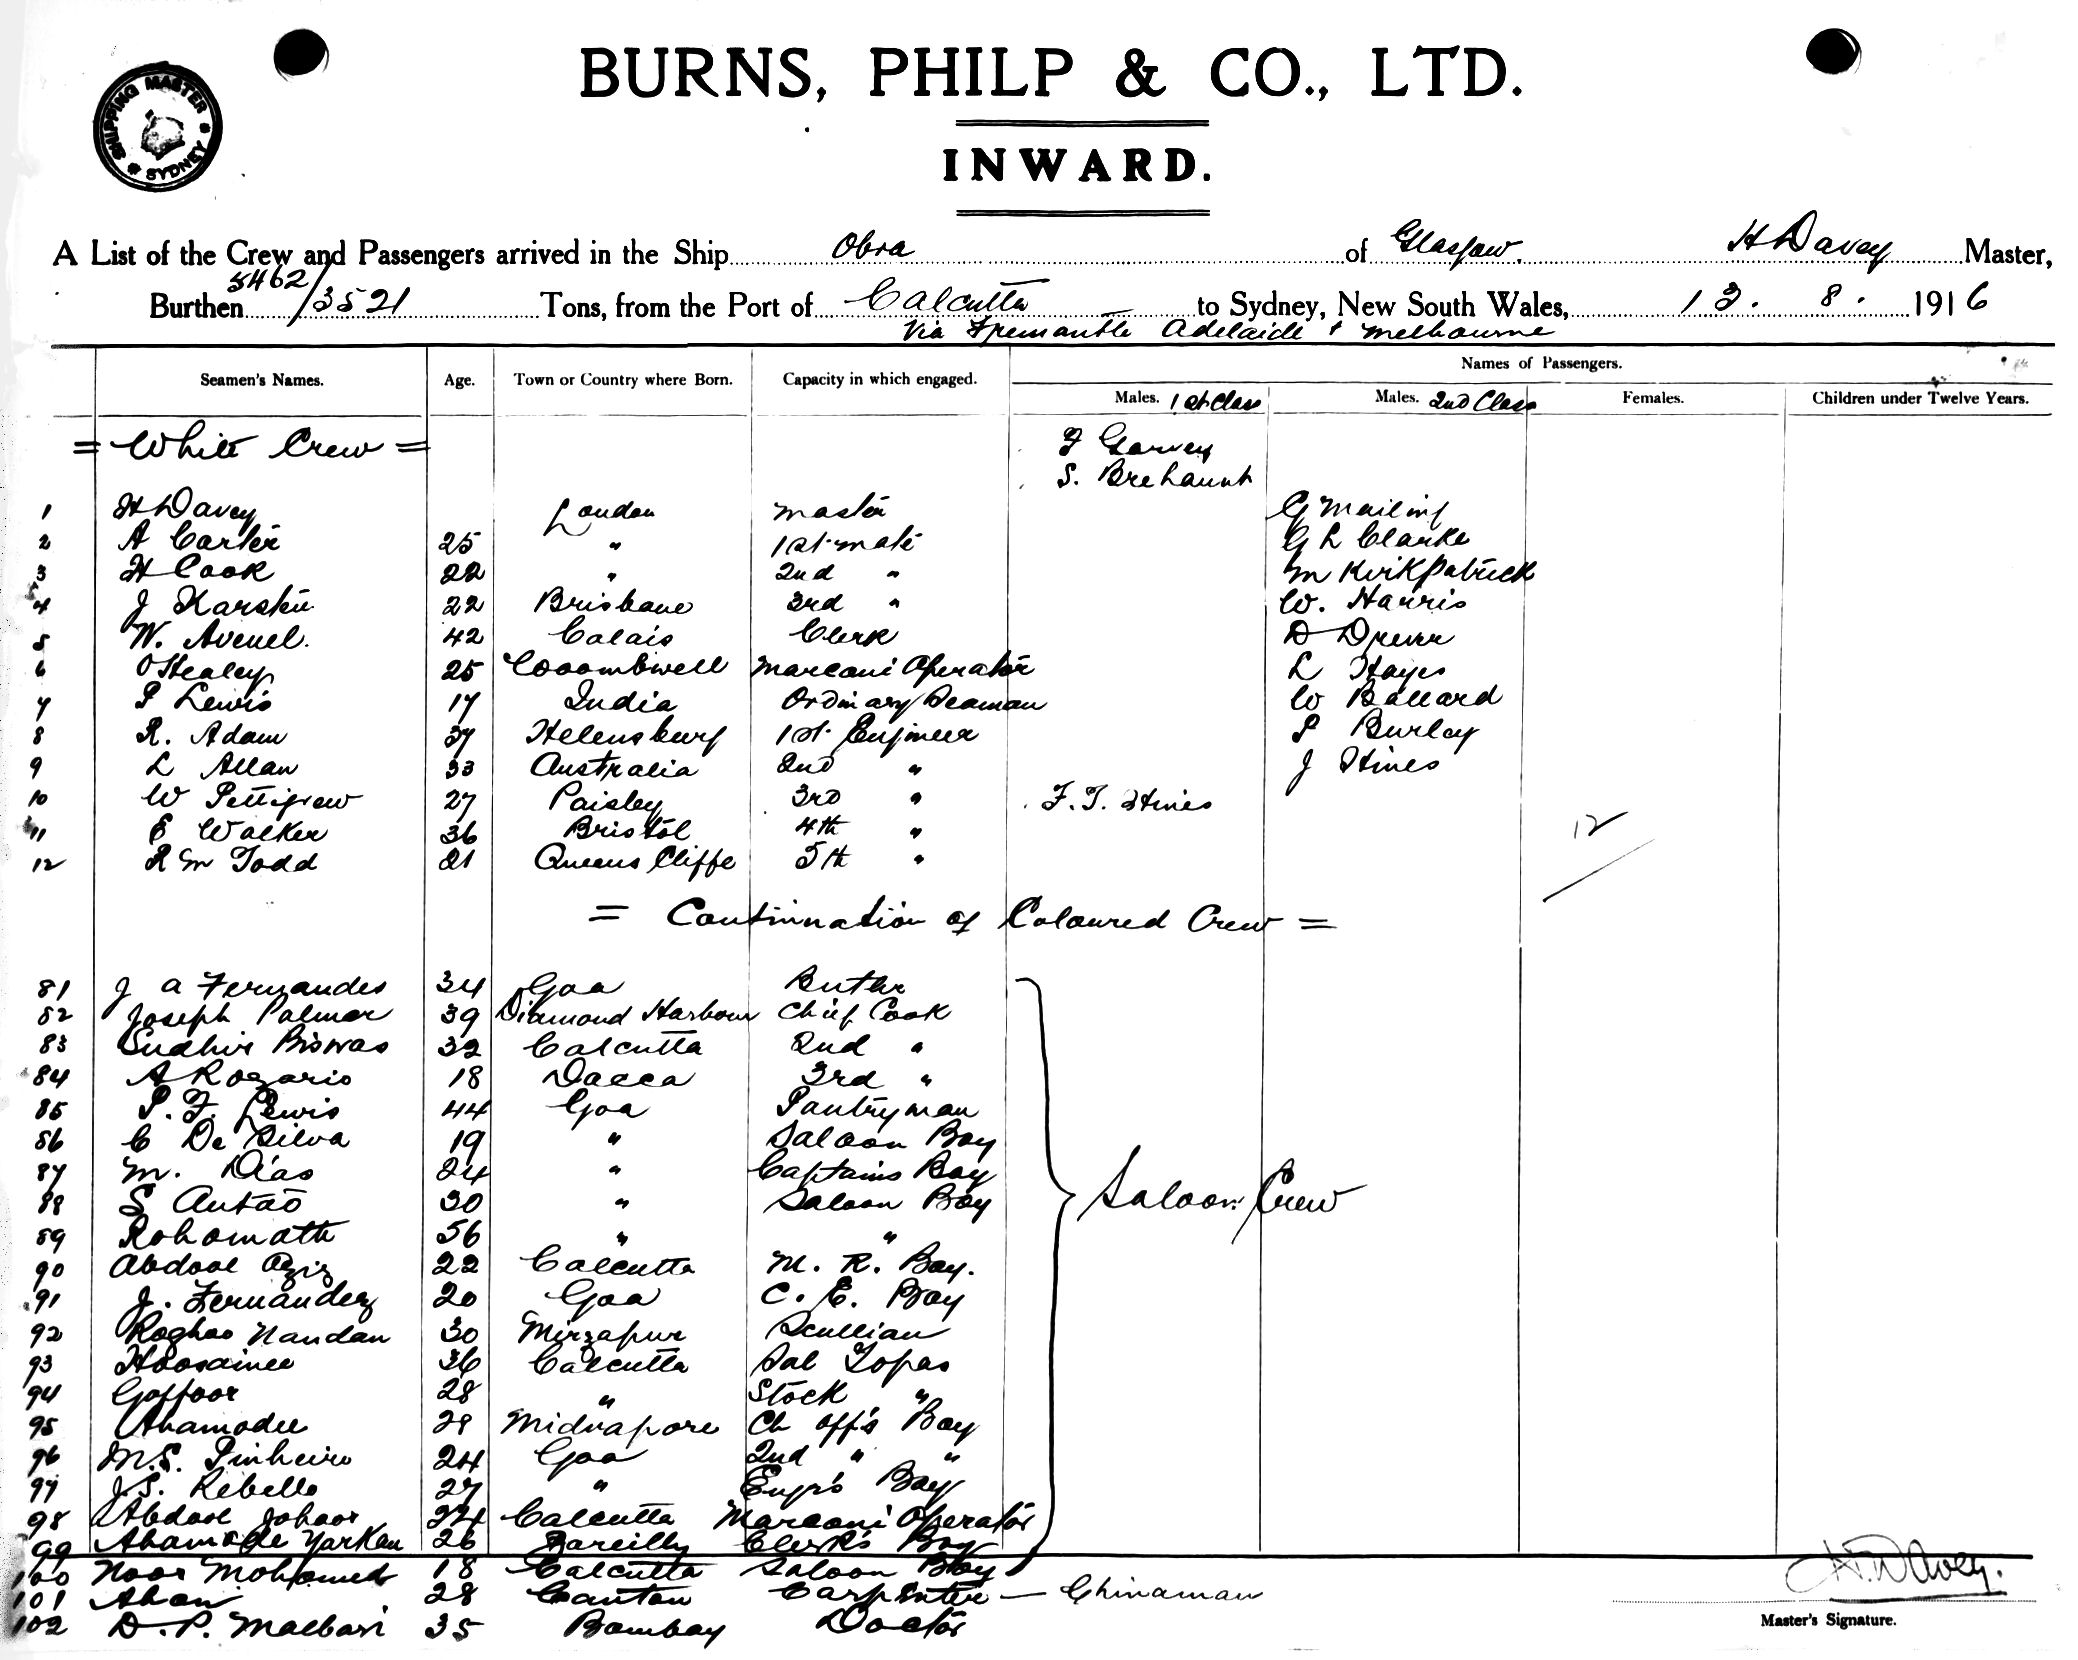 SHIPPING MASTER SYDNEY
BURNS, PHILP & CO., LTD.
INWARD.
A List of the Crew and Passengers arrived in the Ship Obra of Glasgow. H Davey Master,
Burthen 5462/3521 Tons, from the Port of Calcutta to Sydney, New South Wales, 13. 8. 1916
Via Fremantle Adelaide & Melbourne
Seamen's Names. Age. Town or Country where Born. Capacity in which engaged. Names of Passengers.
Males. 1st Class Males. 2nd Class Females. Children under Twelve Years.
= White Crew = F Garvey
S. Brehaunt
1 H Davey London Master G Mailing
2 A Carter 25 " 1st mate G L Clarke
3 H Cook 22 " 2nd " M Kirkpatrick
4 J Karstin 22 Brisbane 3rd " W. Harris
5 W. Avenel. 42 Calais Clerk D Drewr
6 O'Healey 25 Cooombwell Marconi Operator L Hayes
7 P Lewis 17 India Ordinary Seaman W Ballard
8 R. Adam 37 Helensburg 1st Engineer P Burley
9 L Allan 33 Australia 2nd " J Hines
10 W Pettigrew 27 Paisley 3rd " F. T. Hines
11 E Walker 36 Bristol 4th " 12
12 R M Todd 21 Queens Cliffe 5th "
= Continnation of Coloured Crew =
81 J a Fernandes 34 Goa Butler
82 Joseph Palmer 39 Diamond Harbour Chief Cook
83 Sudhir Biswas 32 Calcutta 2nd "
84 A Rozario 18 Dacca 3rd "
85 P. F. Lewis 44 Goa Pantryman
86 C De Silva 19 " Saloon Boy
87 M. Dias 24 " Captains Boy
88 S Antao 30 " Saloon Boy Saloon Crew
89 Rohomath 56 " "
90 Abdool Aziz 22 Calcutta M. R. Boy.
91 J. Fernandez 20 Goa C. E. Boy
92 Roghoo Nandan 30 Mirzapur Scullian
93 Hoosainee 36 Calcutta Sal Topas
94 Goffoor 28 " Stock "
95 Ahamodee 28 Midnapore Ch off's Boy
96 M.S. Pinheiro 24 Goa 2nd " "
97 J.S. Rebello 27 " Engr's Boy
98 Abdool Johoor 24 Calcutta Marconi Operator
99 Ahamode Yarkan 26 Bareilly Clerk's Boy
100 Noor Mohamed 18 Calcutta Saloon Boy
101 Ahan 28 Canton Carpenter — Chinaman
102 D. P. Malbari 35 Bombay Doctor
H. Davey.
Master's Signature.